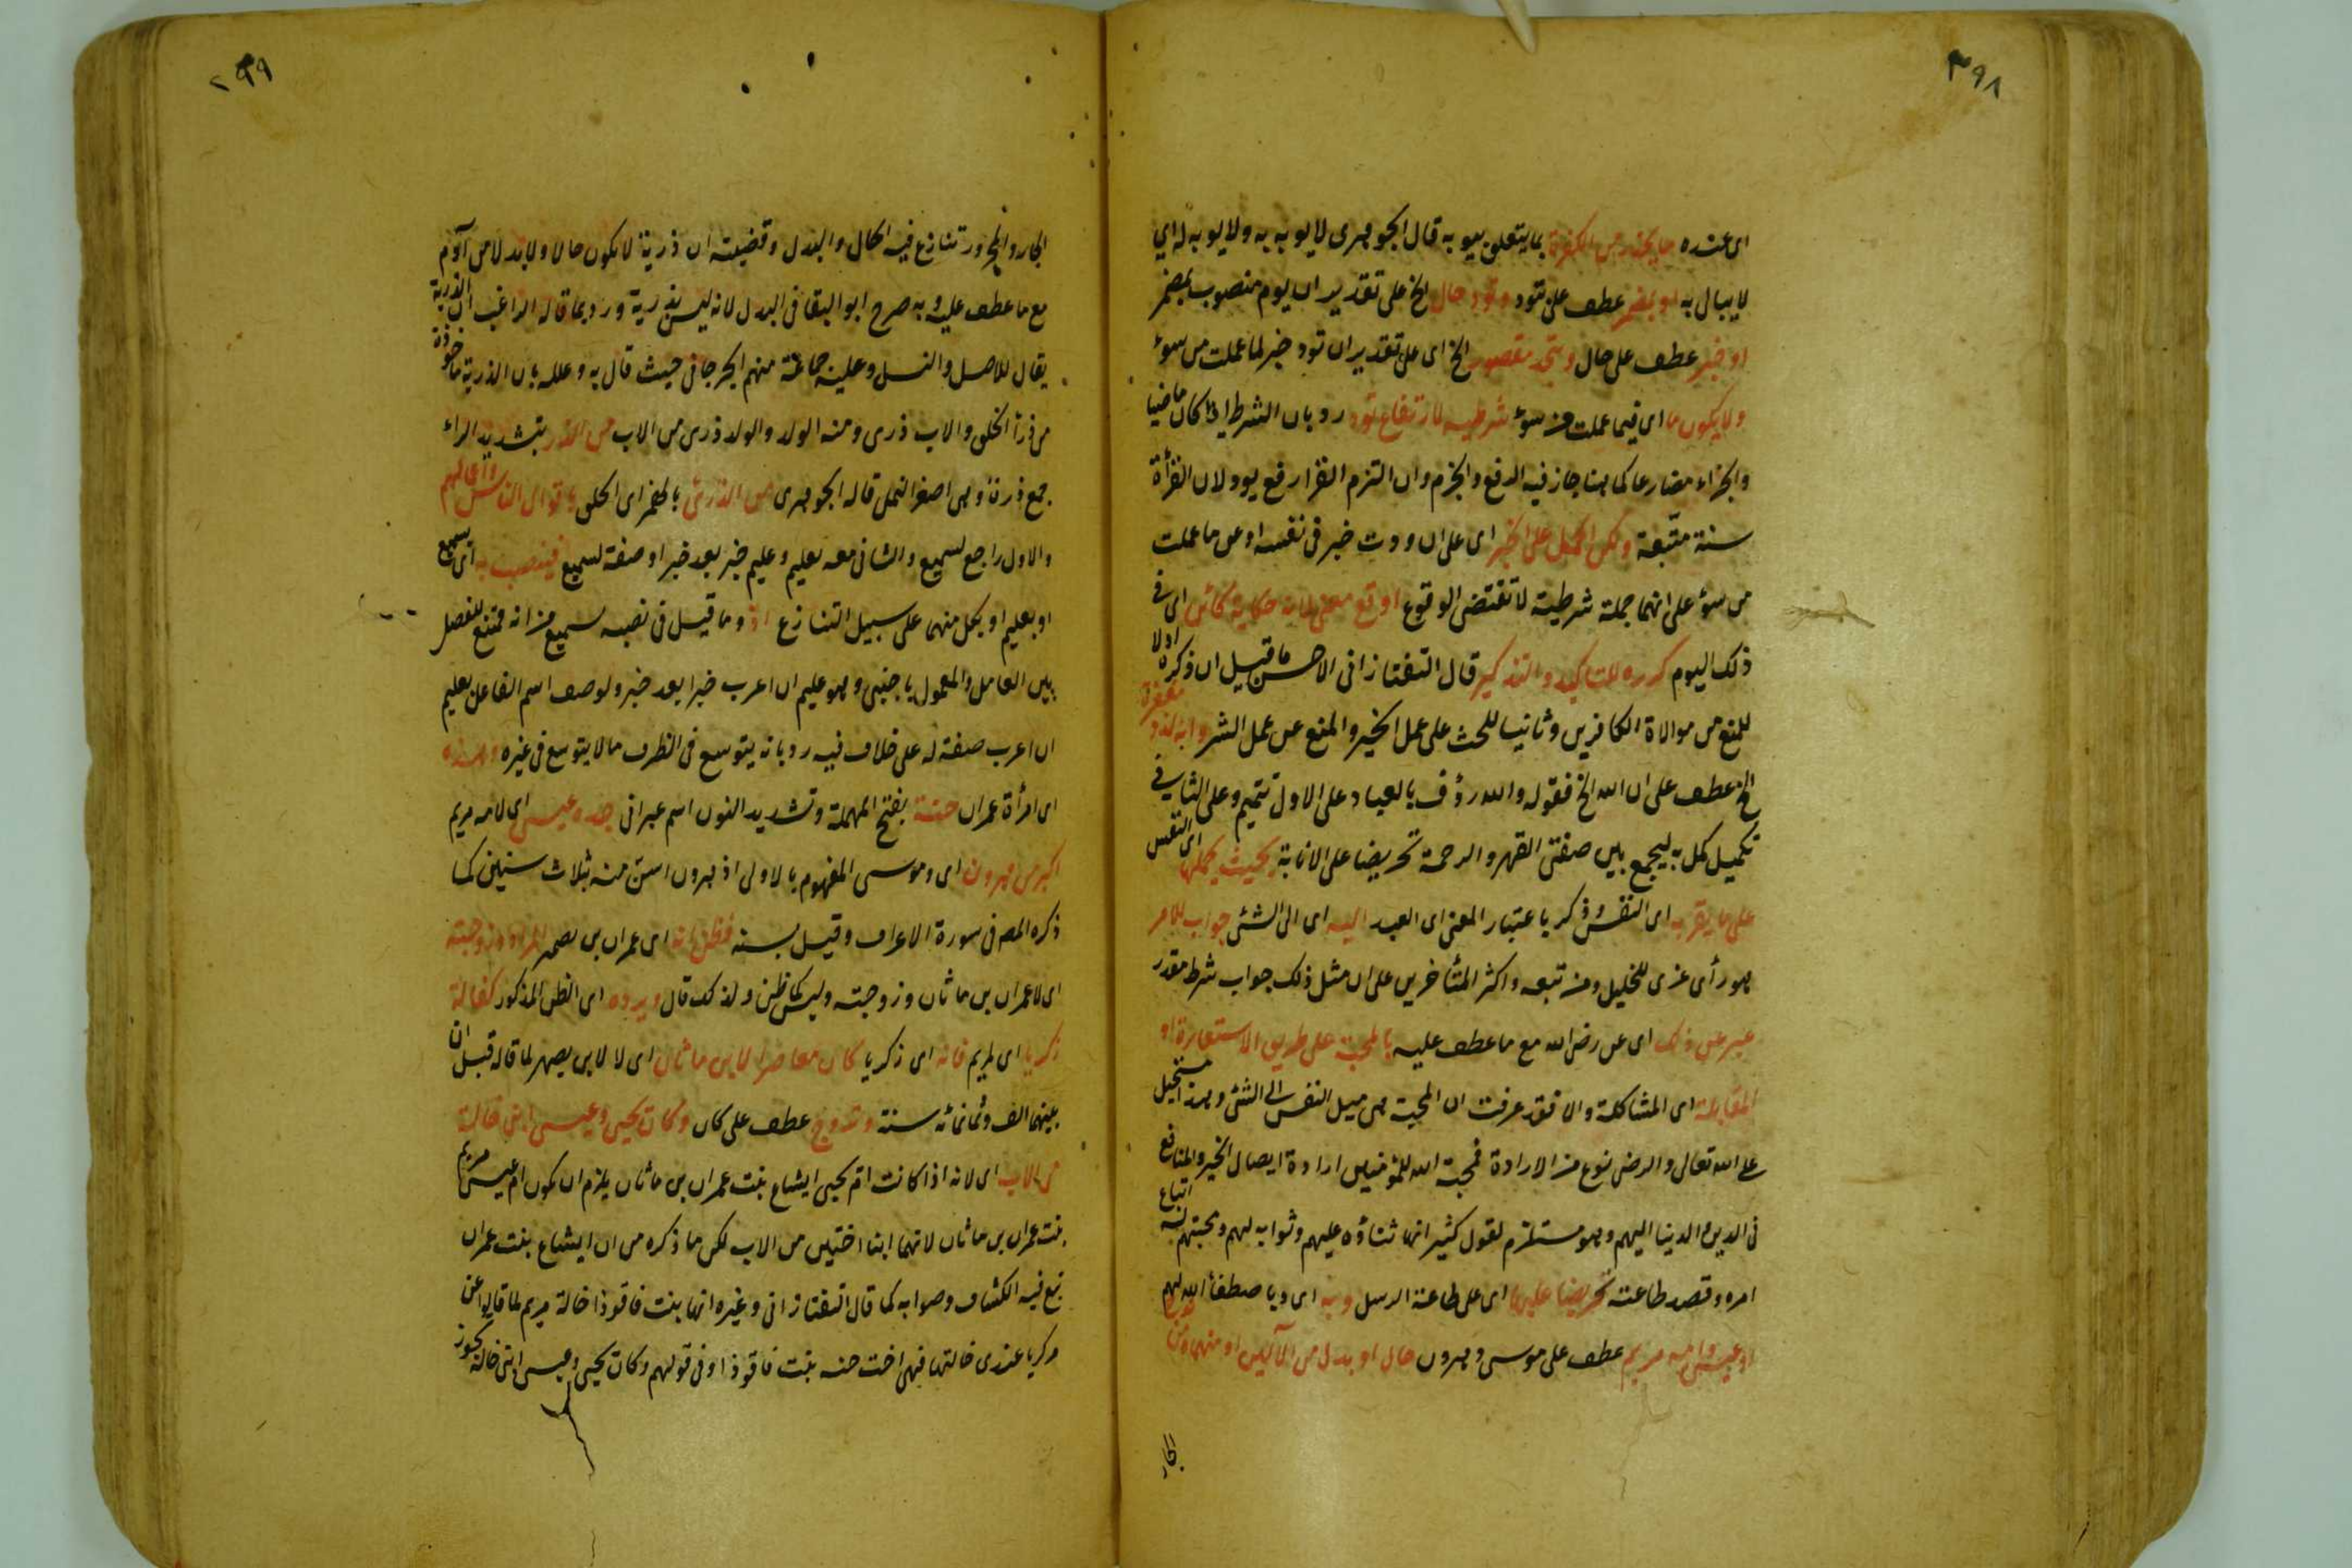 ٣٩٨
اى عنده بما يتعلق بيوبه قال الجوهرى لا يوبه به ولا يوبه له اي
لا يبال به او بمضمر عطف على تود وتود حال الخ على تقدير ان يوم منصوب بمضمر
او خبر عطف على حال و مقصور الخ اى على تقدير ان تود خبر لما عملت من سوء
ولا يكون ما اى فيما عملت من سوء شرطيه لارتفاع تود رد بان الشرط اذا كان ماضيا
والجزاء مضارعا كما هنا جاز فيه الرفع والجزم وان التزم القرا رفع يود لان القرأة
سنة متّبعة ولكن الحمل على الخبر اى على ان ودت خبر فى نفسه او عن ما عملت
من سوء على انها جملة شرطية لا تقتضى الوقوع اوقع معنى لانه حكاية كائن اى فى
ذلك اليوم كرره للتاكيد والتذكير قال التفتازانى الاحسن ما قيل ان ذكره اولا
للمنع من موالاة الكافرين وثانيا للحث على عمل الخير والمنع عن عمل الشر وانه لذو مغفرة
الخ عطف على ان الله الخ فقوله والله رؤف بالعباد على الاول تتميم وعلى الثانى
تكميل كمل به ليجمع بين صفتى القهر والرحمة تحريضا على الانابة بحيث يحملها اى النفس
على ما يقربه اى النفس وذكر باعتبار المعنى اى العبد اليه اى الى الشئ جواب للامر
هو رأى عزى للخليل ومن تبعه واكثر المتأخرين على ان مثل ذلك جواب شرط مقدر
عبر عن ذلك اى عن رضى الله مع ما عطف عليه بالمحبة على طريق الاستعارة او
المقابلة اى المشاكلة والا فقد عرفت ان المحبة هى ميل النفس الى الشئ وهذا مستحيل
على الله تعالى والرضى نوع من الارادة فمحبة الله للمؤمنين ارادة ايصال الخير والمنافع
فى الدين والدنيا اليهم وهو مستلزم لقول كثير انها ثناؤه عليهم وثوابه لهم ومحبتهم له اتباع
امره وقصد طاعته تحريضا عليها اى على طاعة الرسل وبه اى وباصطفاء الله لهم
او عيسى وامه مريم عطف على موسى وهرون حال او بدل من الآلين او منهما ومن
الجار
٢٩٩
الجار والمجرور تنازع فيه الحال والبدل وقضيته ان ذرية لا يكون حالا ولا بدلا من آدم
مع ما عطف عليه وبه صرح ابو البقا فى البدل لانه ليس بذرية ورد بما قاله الراغب ان الذرية
يقال للاصل والنسل وعليه جماعة منهم الجرجانى حيث قال به وعلله بان الذرية ماخوذة
من ذرأ الخلق والاب ذرى ومنه الولد والولد ذرى من الاب من الذر بتشديد الراء
جمع ذرة وهى اصغر النمل قاله الجوهرى من الذرئ بالهمز اى الخلق باقوال الناس واعمالهم
والاول راجع لسميع والثانى معه بعليم وعليم خبر بعد خبر او صفة لسميع فينصب به اى بسميع
او بعليم او بكل منهما على سبيل التنازع اذ وما قيل فى نصبه بسميع من انه ممتنع للفصل
بين العامل والمعمول باجنبى وهو عليم ان اعرب خبرا بعد خبر ولوصف اسم الفاعل بعليم
ان اعرب صفة له على خلاف فيه رد بانه يتوسع فى الظرف ما لا يتوسع فى غيره وهذه
اى امرأة عمران حنة بفتح المهملة وتشديد النون اسم عبرانى جده عيسى اى لامه مريم
اكبر من هرون اى وموسى المفهوم بالاولى اذ هرون اسن منه بثلاث سنين كما
ذكره المص فى سورة الاعراف وقيل بسنه فظن انه اى عمران بن يصهر المراد وزوجته
اى لا عمران بن ماثان وزوجته وليس كما ظن ولذلك قال ويرده اى الظن المذكور كفالة
زكريا اى لمريم فانه اى زكريا كان معاصرا لابن ماثان اى لا لابن يصهر لما قاله قبل ان
بينهما الف وثمانمائه سنة وتزوج عطف على كان وكان يحيى وعيسى ابنى خالة
من الاب اى لانه اذا كانت ام يحيى ايشاع بنت عمران بن ماثان يلزم ان يكون ام عيسى مريم
بنت عمران بن ماثان لانهما ابنا اختين من الاب لكن ما ذكره من ان ايشاع بنت عمران
تبع فيه الكشاف وصوابه كما قال التفتازانى وغيره انها بنت فاقوذا خالة مريم لما قالوا عن
زكريا عندى خالتها فهى اخت حنه بنت فاقوذا وفى قولهم وكان يحيى وعيسى ابنى خالة تجوز